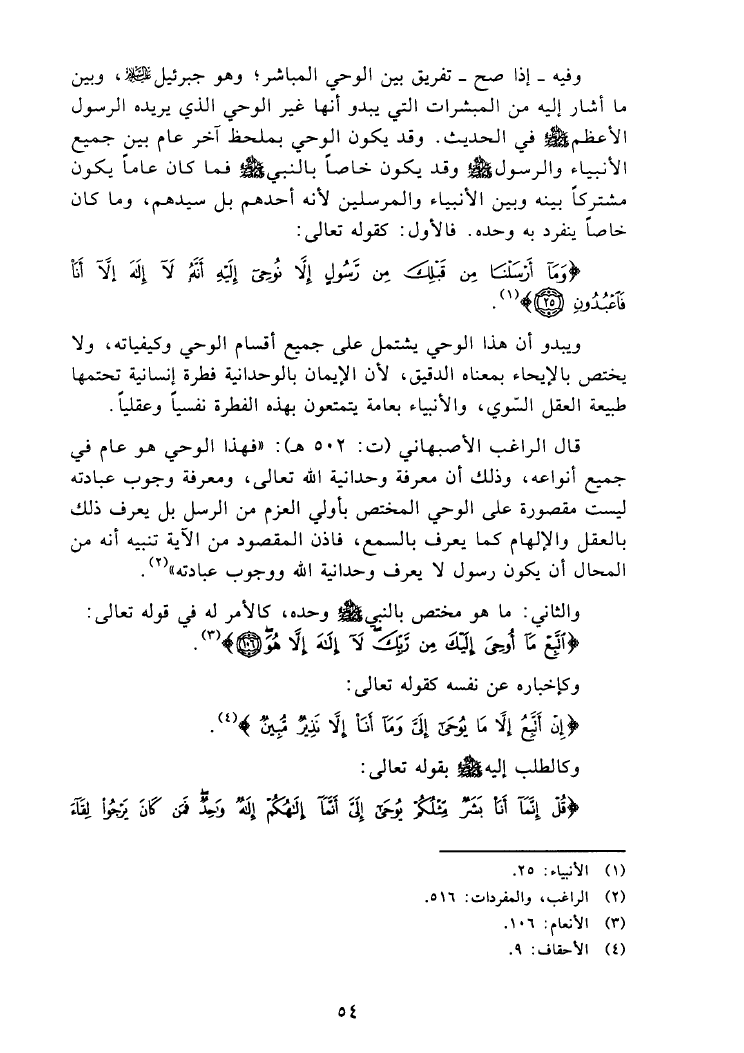 وفيه ـ إذا صح ـ تفريق بين الوحي المباشر؛ وهو جبرئيل ﷺ، وبين
ما أشار إليه من المبشرات التي يبدو أنها غير الوحي الذي يريده الرسول
الأعظم ﷺ في الحديث. وقد يكون الوحي بملحظ آخر عام بين جميع
الأنبياء والرسول ﷺ وقد يكون خاصاً بالنبي ﷺ فما كان عاماً يكون
مشتركاً بينه وبين الأنبياء والمرسلين لأنه أحدهم بل سيدهم، وما كان
خاصاً ينفرد به وحده. فالأول: كقوله تعالى:
﴿وَمَآ أَرْسَلْنَا مِن قَبْلِكَ مِن رَّسُولٍ إِلَّا نُوحِىٓ إِلَيْهِ أَنَّهُۥ لَآ إِلَٰهَ إِلَّآ أَنَا۠
فَٱعْبُدُونِ ٢٥﴾(١).
ويبدو أن هذا الوحي يشتمل على جميع أقسام الوحي وكيفياته، ولا
يختص بالإيحاء بمعناه الدقيق، لأن الإيمان بالوحدانية فطرة إنسانية تحتمها
طبيعة العقل السّوي، والأنبياء بعامة يتمتعون بهذه الفطرة نفسياً وعقلياً.
قال الراغب الأصبهاني (ت: ٥٠٢ هـ): «فهذا الوحي هو عام في
جميع أنواعه، وذلك أن معرفة وحدانية الله تعالى، ومعرفة وجوب عبادته
ليست مقصورة على الوحي المختص بأولي العزم من الرسل بل يعرف ذلك
بالعقل والإلهام كما يعرف بالسمع، فاذن المقصود من الآية تنبيه أنه من
المحال أن يكون رسول لا يعرف وحدانية الله ووجوب عبادته»(٢).
والثاني: ما هو مختص بالنبي ﷺ وحده، كالأمر له في قوله تعالى:
﴿ٱتَّبِعْ مَآ أُوحِىَ إِلَيْكَ مِن رَّبِّكَ ۖ لَآ إِلَٰهَ إِلَّا هُوَ ۖ ١٠٦﴾(٣).
وكإخباره عن نفسه كقوله تعالى:
﴿إِنْ أَتَّبِعُ إِلَّا مَا يُوحَىٰٓ إِلَىَّ وَمَآ أَنَا۠ إِلَّا نَذِيرٌ مُّبِينٌ﴾(٤).
وكالطلب إليه ﷺ بقوله تعالى:
﴿قُلْ إِنَّمَآ أَنَا۠ بَشَرٌ مِّثْلُكُمْ يُوحَىٰٓ إِلَىَّ أَنَّمَآ إِلَٰهُكُمْ إِلَٰهٌ وَٰحِدٌ ۖ فَمَن كَانَ يَرْجُوا۟ لِقَآءَ
(١) الأنبياء: ٢٥.
(٢) الراغب، والمفردات: ٥١٦.
(٣) الأنعام: ١٠٦.
(٤) الأحقاف: ٩.
٥٤